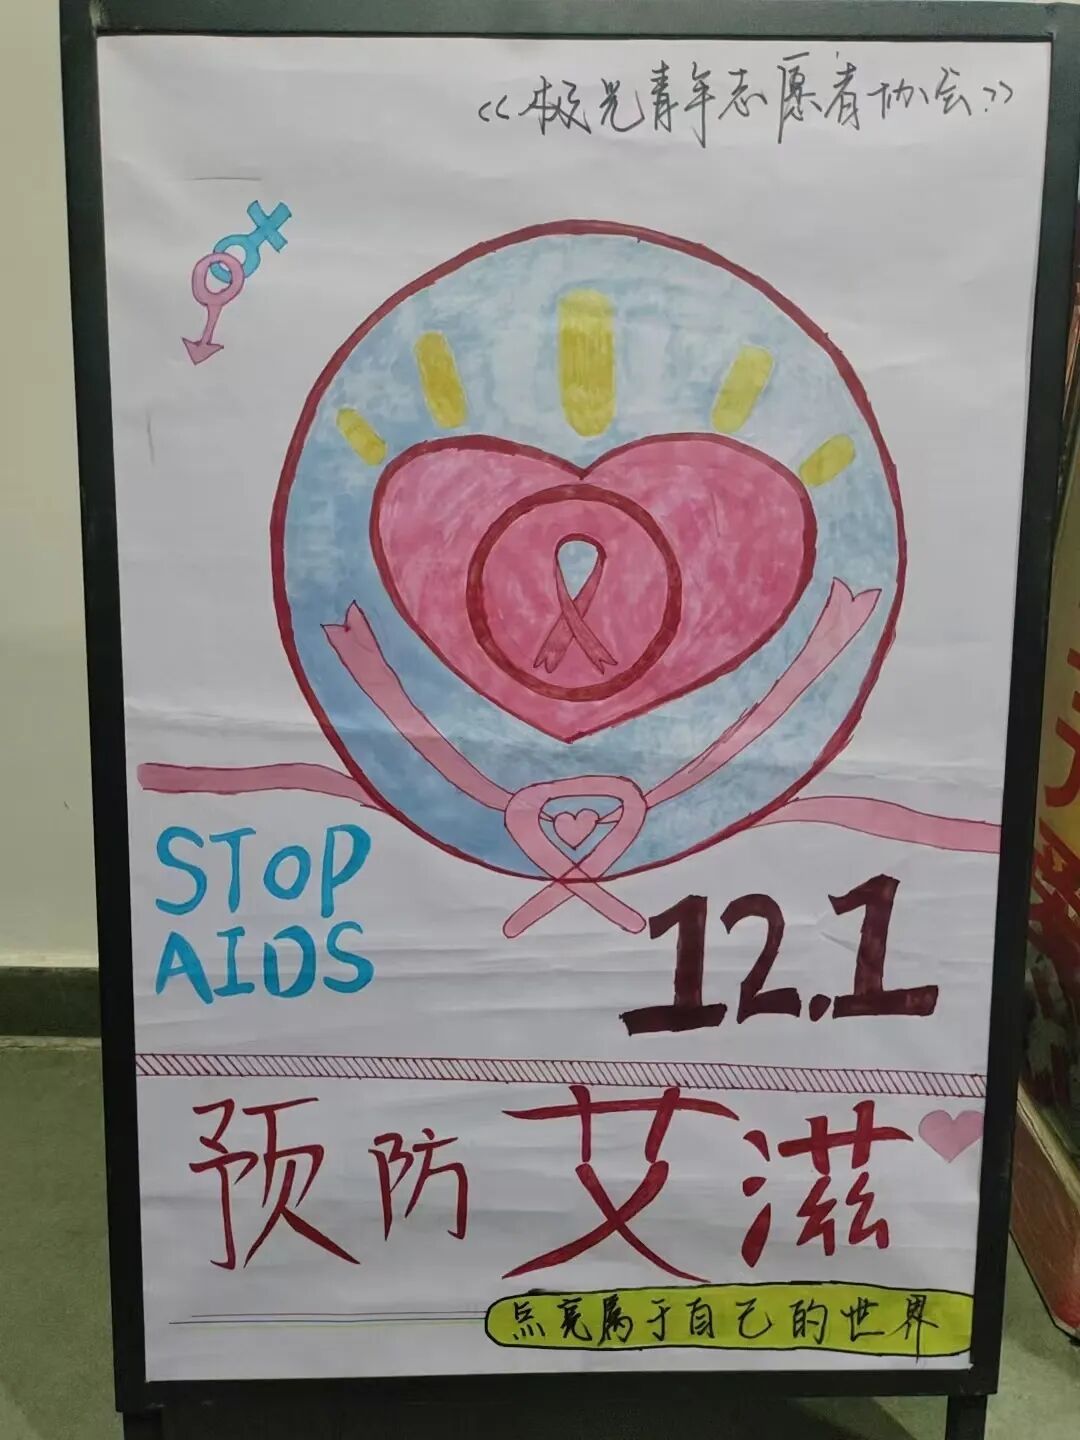 《极光青年志愿者协会》
STOP
AIDS
12.1
预防艾滋
点亮属于自己的世界